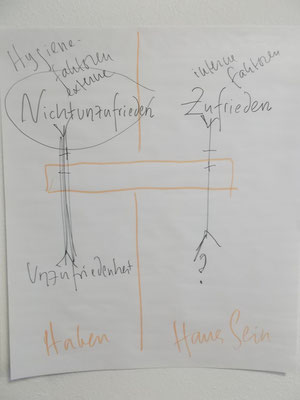 Hygiene-
faktoren
externe
Nichtunzufrieden
Unzufriedenheit
Haben
interne Faktoren
Zufrieden
?
Sein